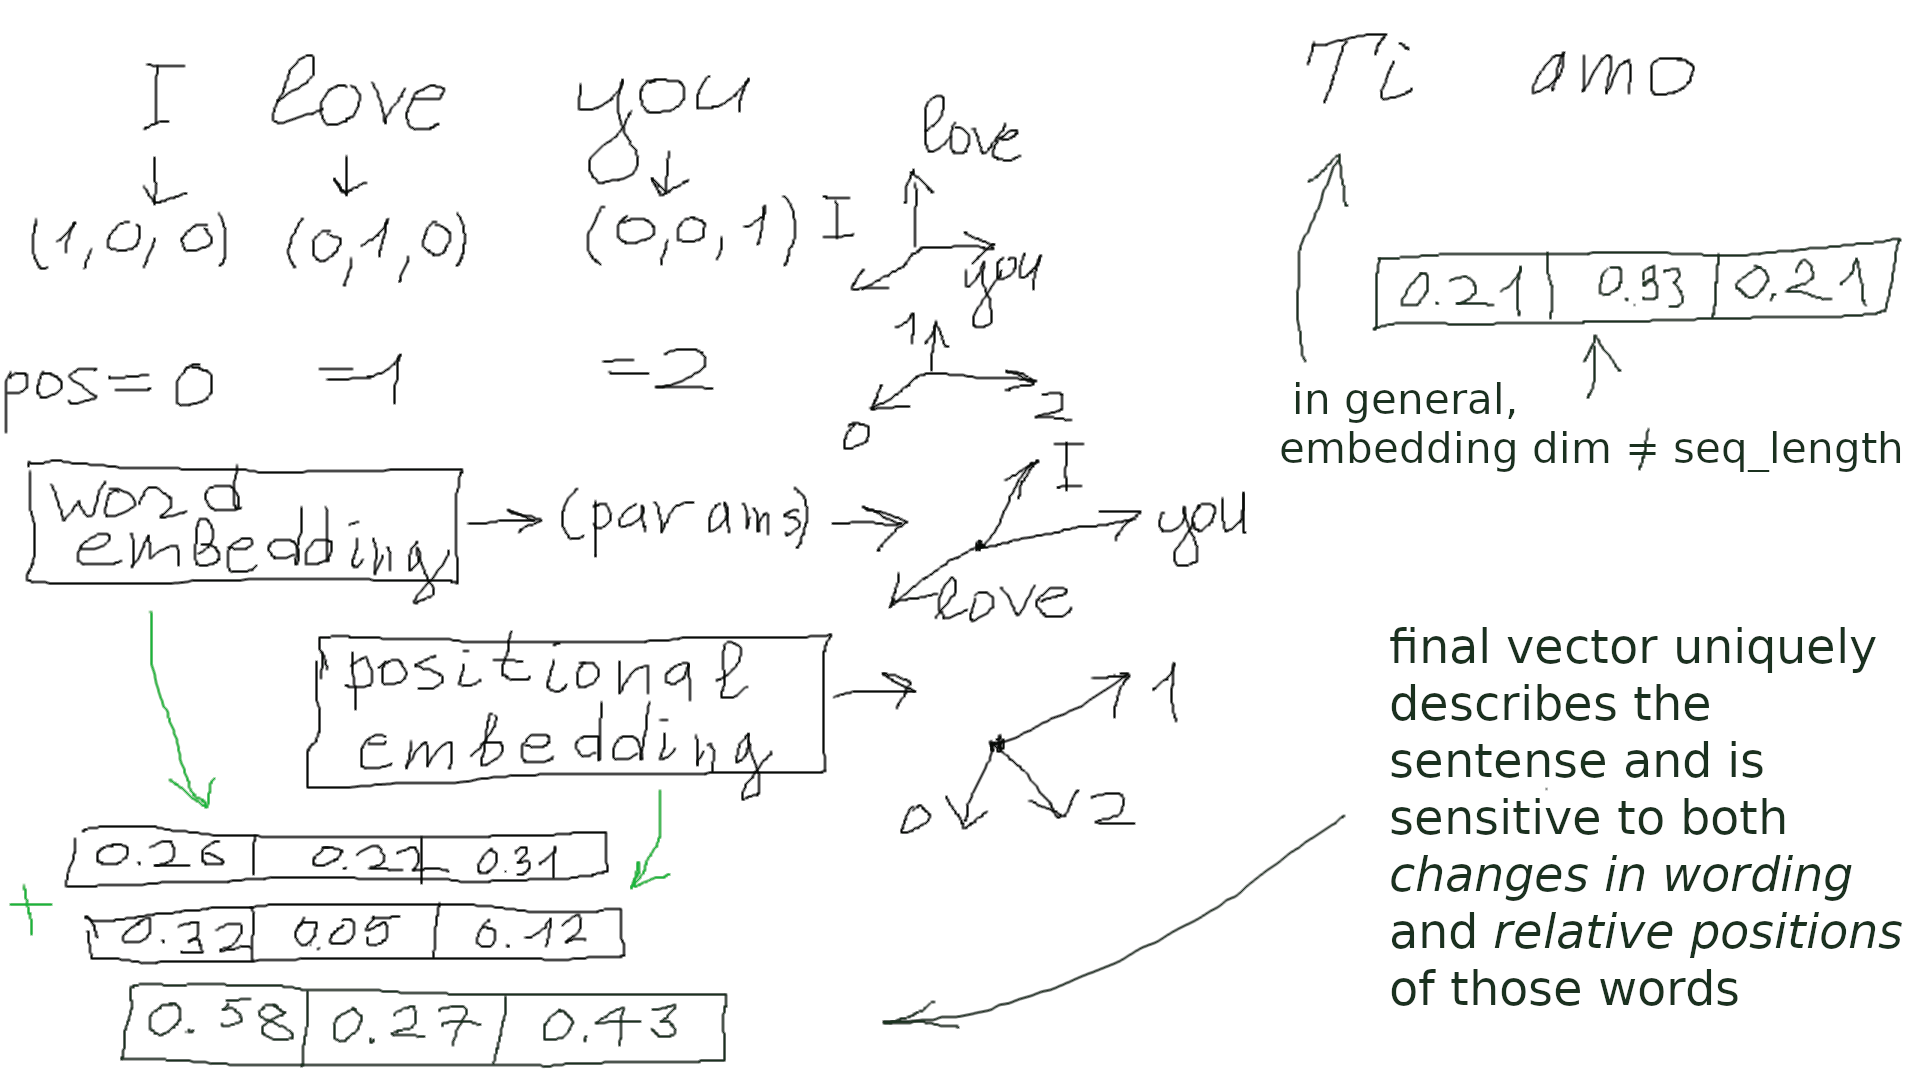 I love you
(1,0,0) (0,1,0) (0,0,1)
pos=0 =1 =2
love
I
you
1
0
2
word
embedding
(params)
I
you
love
positional
embedding
1
0
2
0.26 0.22 0.31
+
0.32 0.05 0.12
0.58 0.27 0.43
Ti amo
0.21 0.93 0.21
in general,
embedding dim ≠ seq_length
final vector uniquely
describes the
sentense and is
sensitive to both
changes in wording
and relative positions
of those words